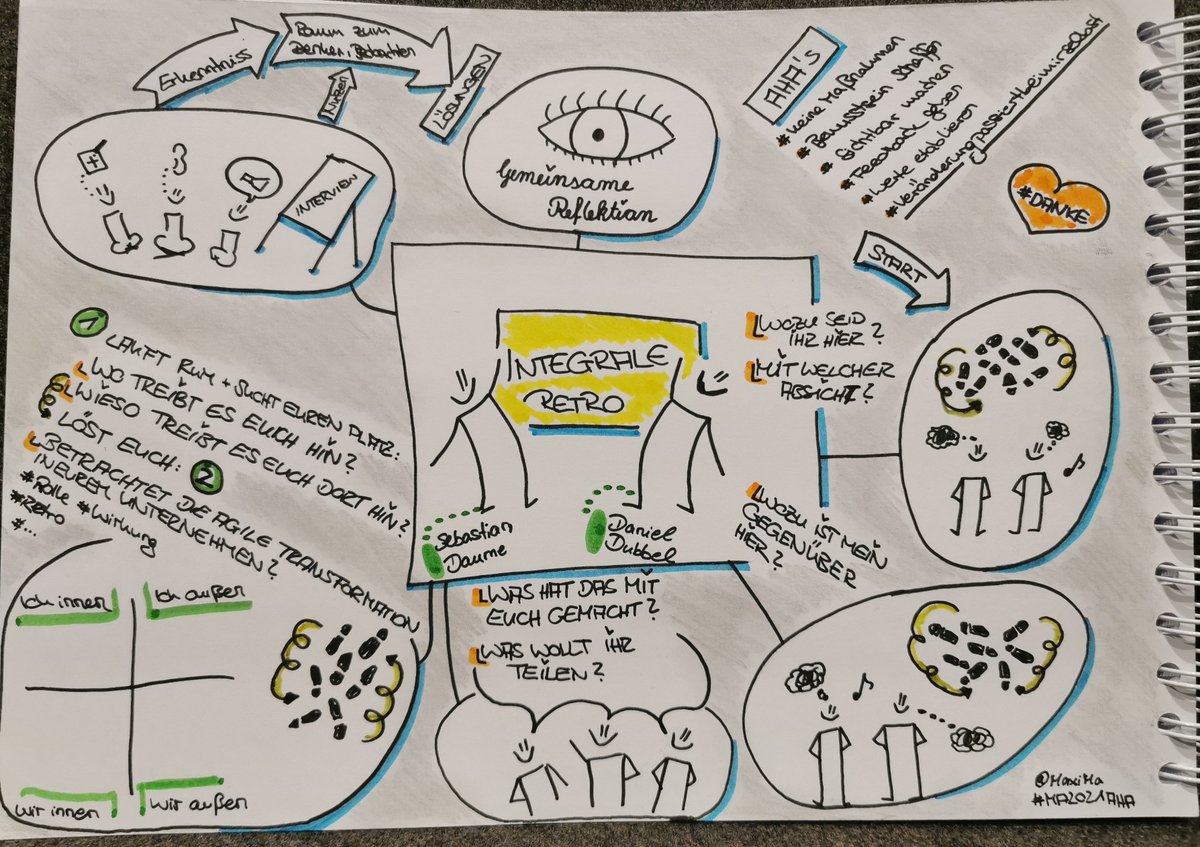 Erkenntnis
Raum zum
Denken, Beobachten
LÖSUNGEN
Nutzen
INTERVIEW
Gemeinsame
Reflektion
AHA'S
#Keine Maßnahmen
#Bewusstsein schaffen
#Sichtbar machen
#Feedback geben
#Werte etablieren
#Veränderungpassiertbeimirselbst
#DANKE
START
INTEGRALE
RETRO
Sebastian
Daume
Daniel
Dubbel
WOZU SEID
IHR HIER?
MIT WELCHER
ABSICHT?
WOZU IST MEIN
GEGENÜBER
HIER?
WAS HAT DAS MIT
EUCH GEMACHT?
WAS WOLLT IHR
TEILEN?
1 LAUFT RUM + SUCHT EUREN PLATZ:
WO TREIBT ES EUCH HIN?
WIESO TREIBT ES EUCH DORT HIN?
LÖST EUCH: 2
BETRACHTET DIE AGILE TRANSFORMATION
IN EUREM UNTERNEHMEN?
#Rolle #Wirkung
#Retro
#...
Ich innen
Ich außen
wir innen
wir außen
@MaxiMa
#MA2021AHA